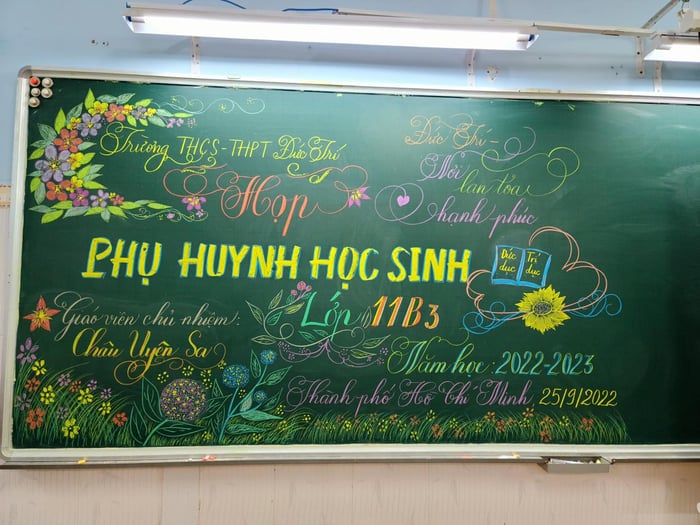 Trường THCS-THPT Đức Trí
Đức Trí -
Nơi
lan tỏa
hạnh phúc
Họp
PHỤ HUYNH HỌC SINH
Đức dục
Trí dục
Lớp 11B3
Giáo viên chủ nhiệm:
Châu Uyên Sa
Năm học: 2022-2023
Thành phố Hồ Chí Minh, 25/9/2022